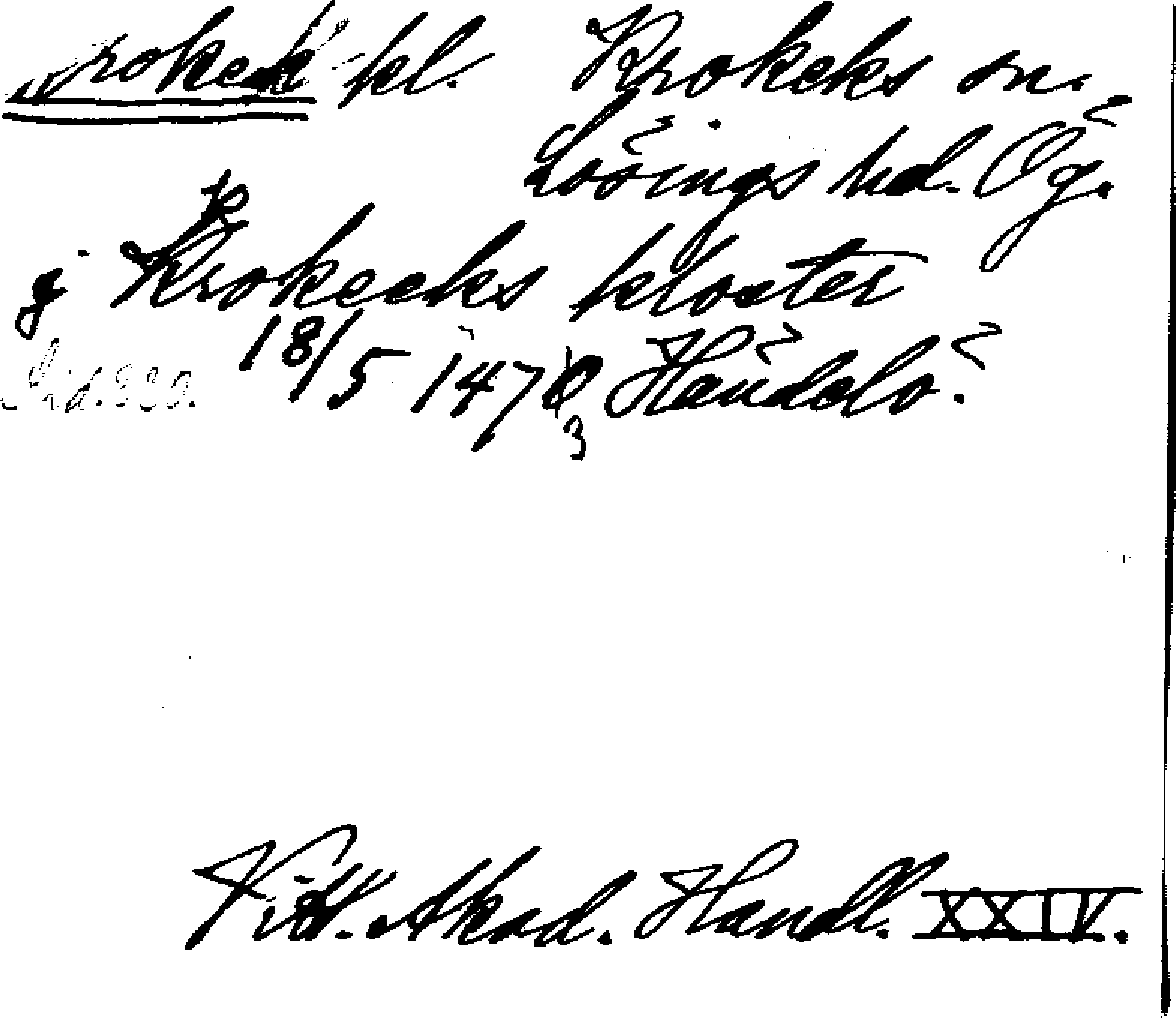 Krokek kl. Krokeks sn.
Lösings hd. Ög.
k
j Krokeeks kloster
18/5 1470 Händelö.
3
Vitt. Akad. Handl. XXIV.